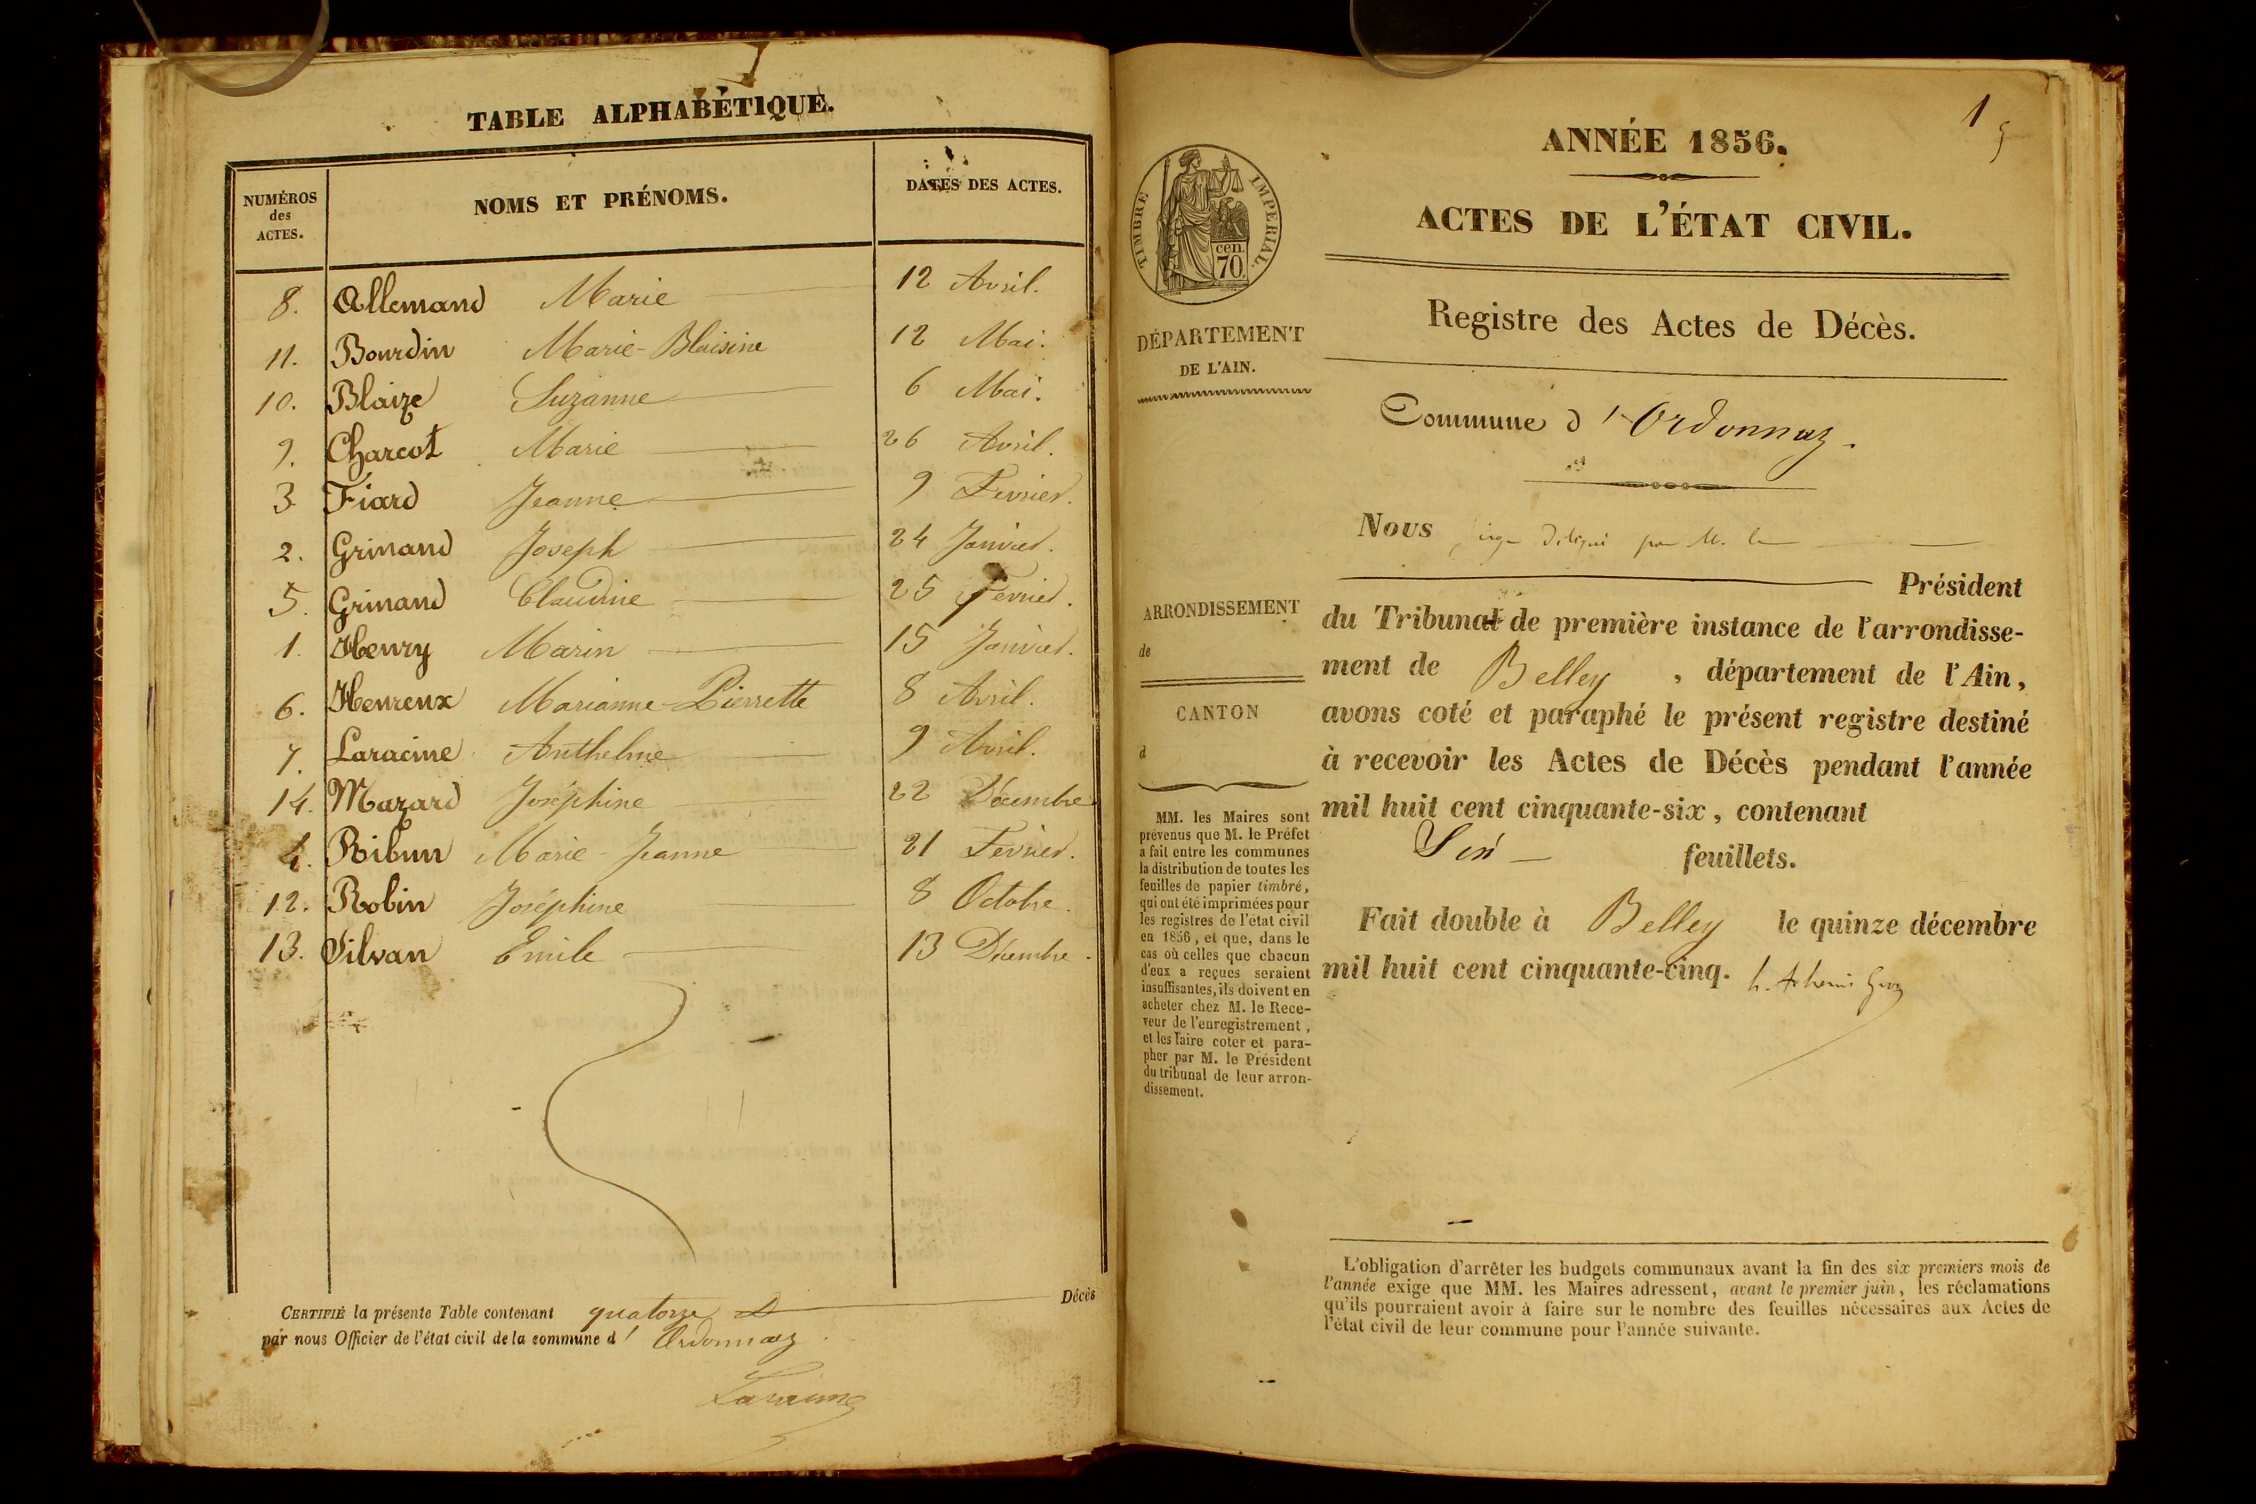 TABLE ALPHABÉTIQUE.
NUMÉROS des ACTES. NOMS ET PRÉNOMS. DATES DES ACTES.
8. Allemand Marie 12 Avril.
11. Bourdin Marie-Blaisine 12 Mai.
10. Blaize Suzanne 6 Mai.
9. Charcot Marie 26 Avril.
3 Fiard Jeanne 9 Fevrier.
2. Grinand Joseph 24 Janvier.
5. Grinand Claudine 25 Fevrier.
1. Henry Marin 15 Janvier.
6. Heureux Marianne-Pierrette 8 Avril.
7. Laracine Anthelme 9 Avril.
14. Mazard Joséphine 22 Décembre
4. Ribun Marie-Jeanne 21 Fevrier.
12. Robin Joséphine 8 Octobre.
13. Silvan Emile 13 Décembre.
CERTIFIÉ la présente Table contenant quatorze Décès
par nous Officier de l'état civil de la commune d' Ordonnaz.
Laracine
1
5
ANNÉE 1856.
TIMBRE IMPERIAL.
cen.
70
ACTES DE L'ÉTAT CIVIL.
Registre des Actes de Décès.
DÉPARTEMENT
DE L'AIN.
Commune d'Ordonnaz.
Nous juge délégué par M. le
Président
ARRONDISSEMENT
de
CANTON
d
du Tribunal de première instance de l'arrondisse-
ment de Belley, département de l'Ain,
avons coté et paraphé le présent registre destiné
à recevoir les Actes de Décès pendant l'année
mil huit cent cinquante-six, contenant
Six feuillets.
Fait double à Belley le quinze décembre
mil huit cent cinquante-cinq.
MM. les Maires sont
prévenus que M. le Préfet
a fait entre les communes
la distribution de toutes les
feuilles de papier timbré,
qui ont été imprimées pour
les registres de l'état civil
en 1856, et que, dans le
cas où celles que chacun
d'eux a reçues seraient
insuffisantes, ils doivent en
acheter chez M. le Rece-
veur de l'enregistrement,
et les faire coter et para-
pher par M. le Président
du tribunal de leur arron-
dissement.
L'obligation d'arrêter les budgets communaux avant la fin des six premiers mois de
l'année exige que MM. les Maires adressent, avant le premier juin, les réclamations
qu'ils pourraient avoir à faire sur le nombre des feuilles nécessaires aux Actes de
l'état civil de leur commune pour l'année suivante.